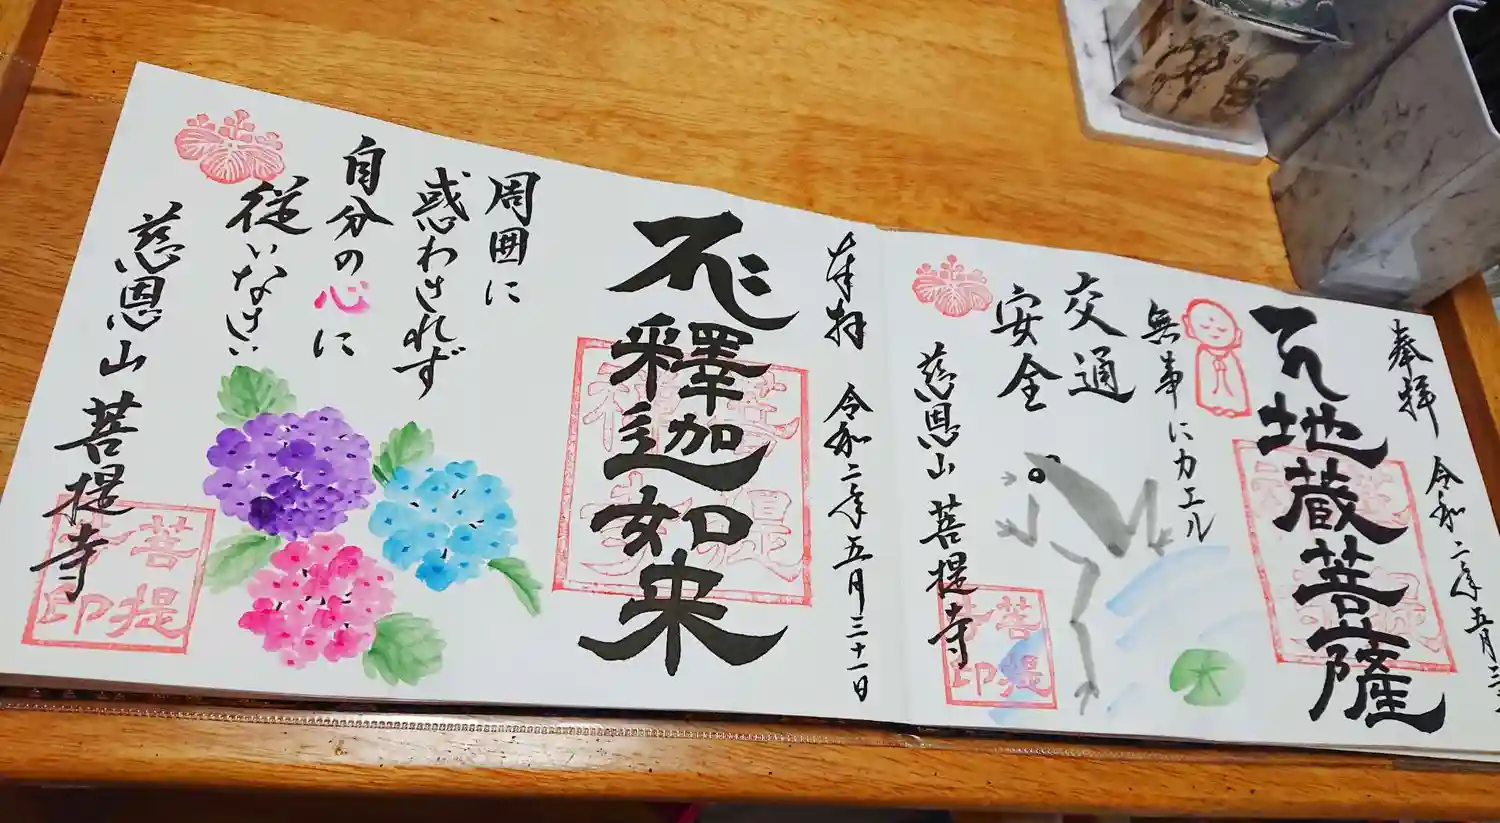 奉拝 令和二年五月三
地蔵菩薩
無事にカエル
交通
安全
慈恩山 菩提寺
菩提
寺印
奉拝 令和二年五月三十一日
釋迦如来
周囲に
惑わされず
自分の心に
従いなさい
慈恩山 菩提寺
菩提
寺印